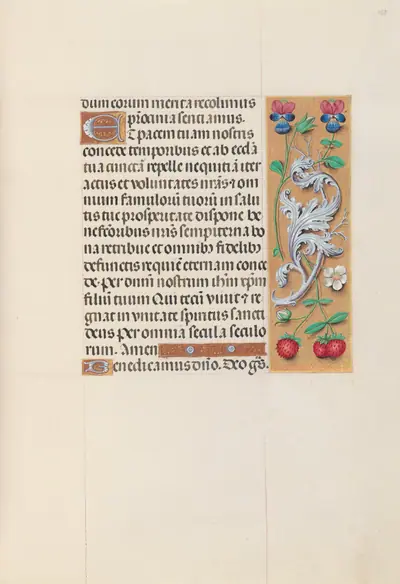 dum eorum merita recolimus
pr̄ocinia sentiamus.
Et pacem tuam nostris
concede temporibus et ab eccl̄ia
tua cunctā repelle nequitiā iter
actus et voluntates nr̄as ⁊ om
nium famulorū tuorū in salu
tis tue prosperitate dispone be
nefcōribus nr̄is sempiterna bo
na retribue et omnib; fidelib;
defunctis requiē eternam conce
de. Per dn̄m nostrum ihm̄ xp̄m
filiū tuum Qui tecū viuit ⁊ re
gnat in vnitate spiritus sancti
deus Per omnia secula seculo
rum. Amen
Benedicamus dn̄o. Deo gr̄s.